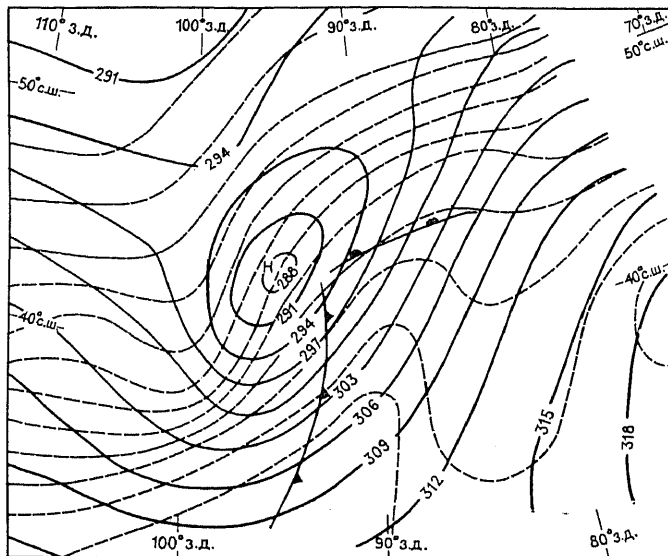 110° з.д.
100° з.д.
90° з.д.
80° з.д.
70° з.д.
50° с.ш.
50° с.ш.
291
294
Н
288
291
294
297
303
306
309
312
315
318
40° с.ш.
40° с.ш.
100° з.д.
90° з.д.
80° з.д.